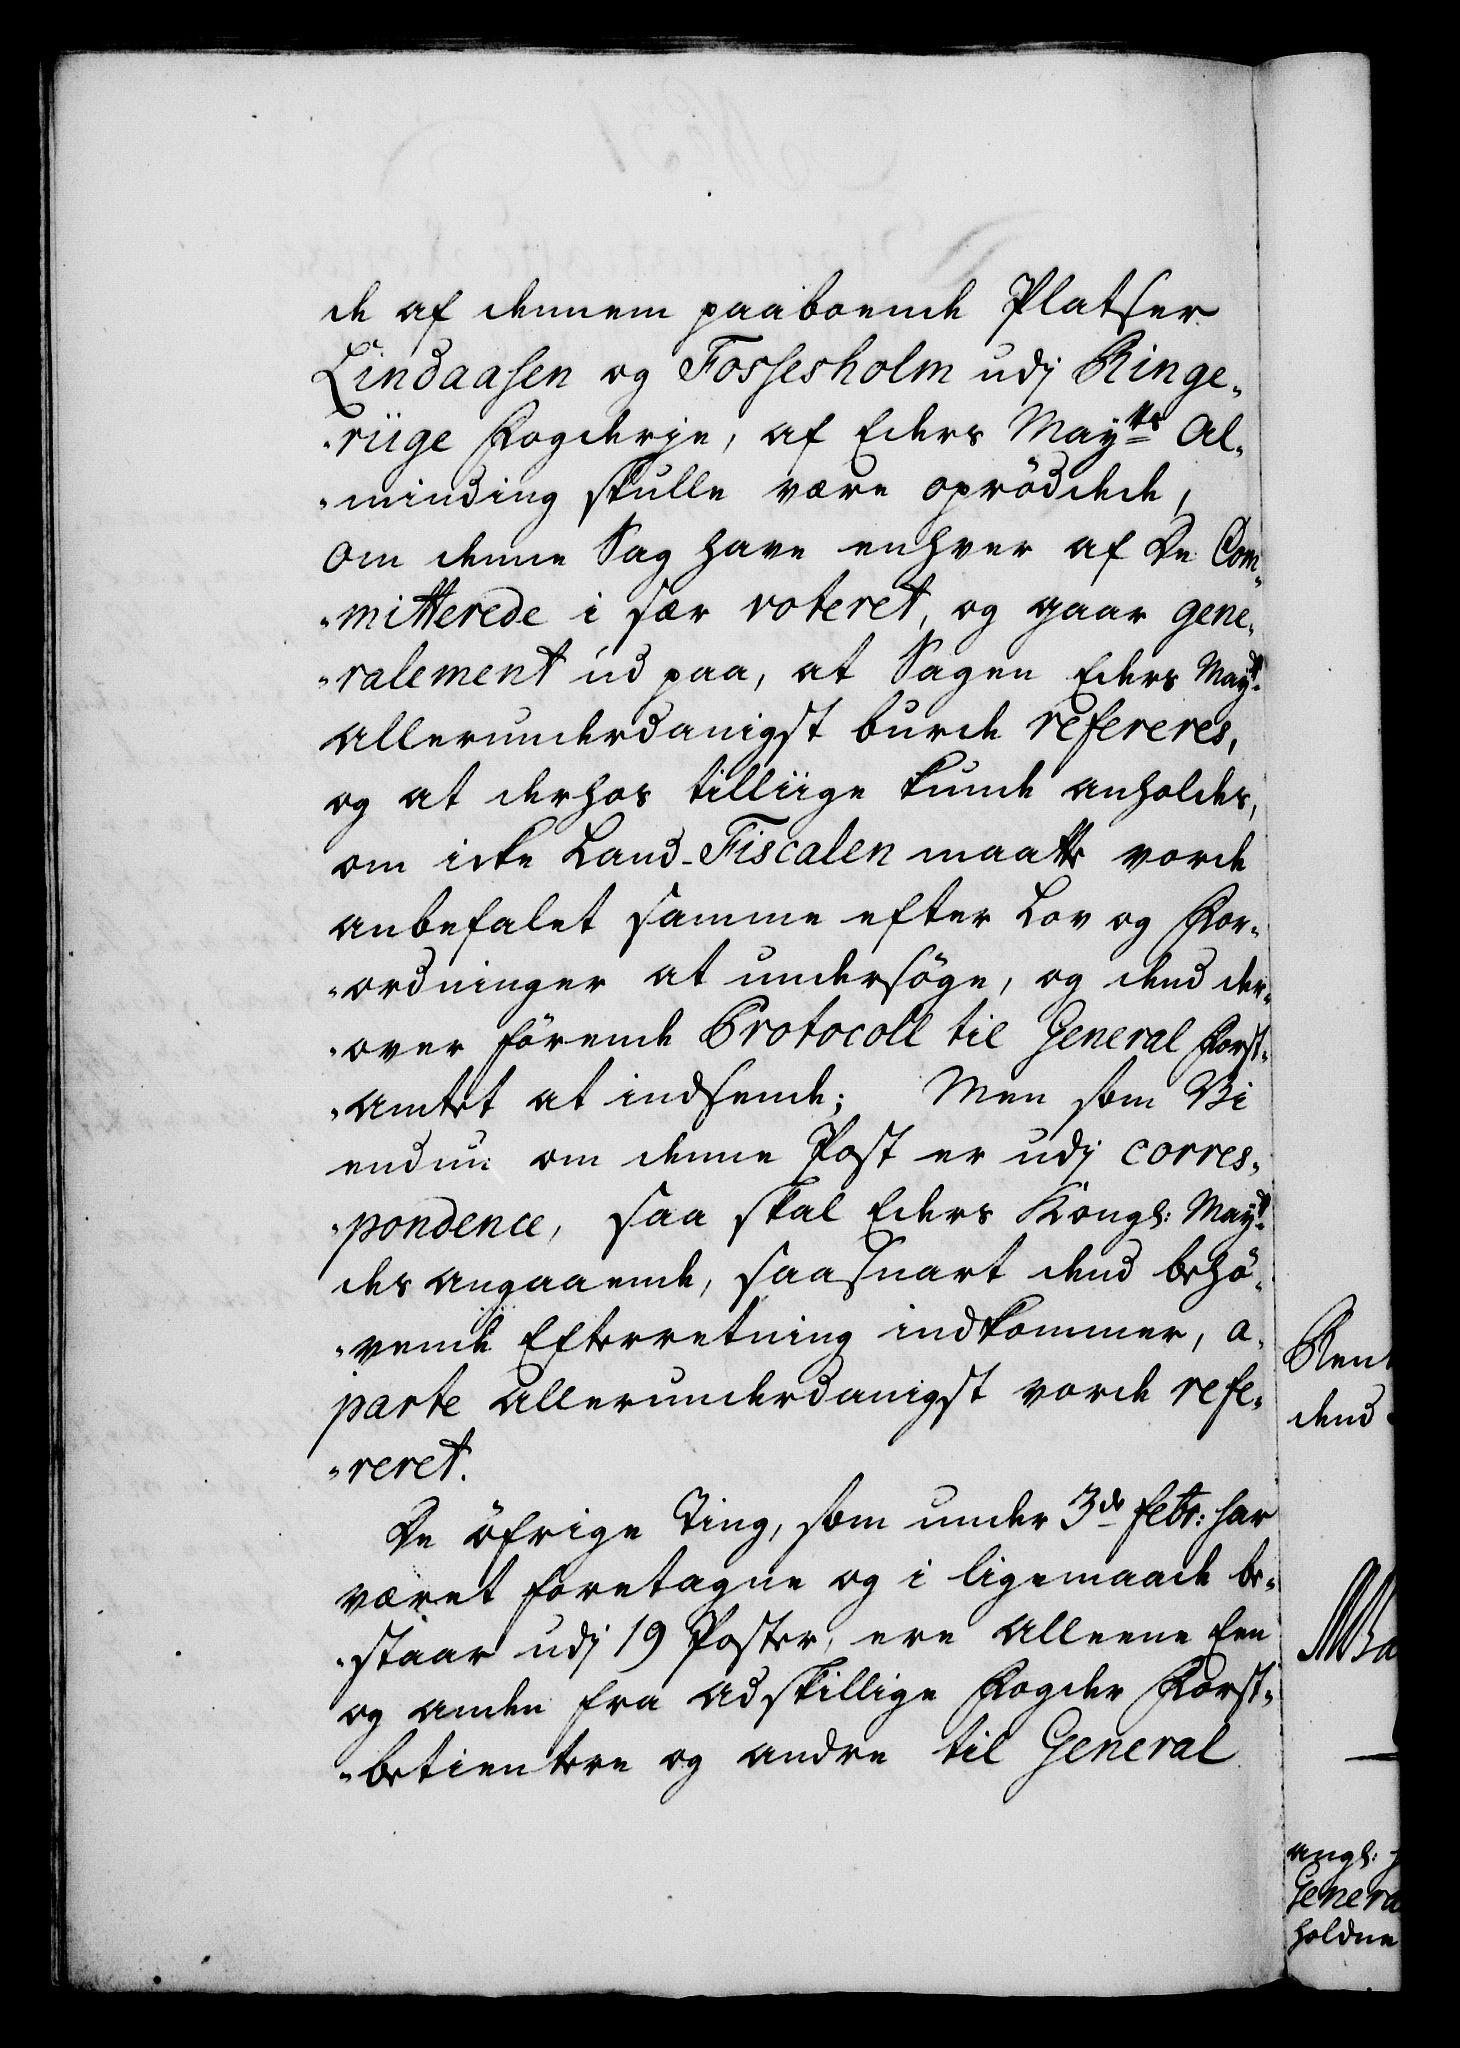 de af dennem paaboende Platser
Lindaasen og Fossesholm udj Ringe-
-riige Fogderje, af Eders Mayts Al-
-minding skulle være opröddede,
om denne Sag have enhver af De Com-
-mitterede i sær voteret, og gaar gene-
-ralement ud paa, at Sagen Eders Mayt
allerunderdanigst burde refereres,
og at derhos tilliige kunde anholdes,
om icke Land-Fiscalen maatte vorde
anbefalet samme efter Lov og For-
-ordninger at undersöge, og dend der-
-over förende Protocoll til General Forst-
-amtet at indsende; Men som Vi
endnu om denne Post er udj corres-
-pondence, saa skal Eders Kongl: Mayt
des angaaende, saasnart dend behö-
-vende Efterretning indkommer, a-
parte allerunderdanigst vorde refe-
-reret.
De öfrige Ting, som under 3de Febr: har
været foretagne og i ligemaade be-
-staar udj 19 Poster, ere alleene Een
og anden fra adskillige Fogder Forst-
-betientere og andre til General
Rent
dend
angl:
Genera
holdne